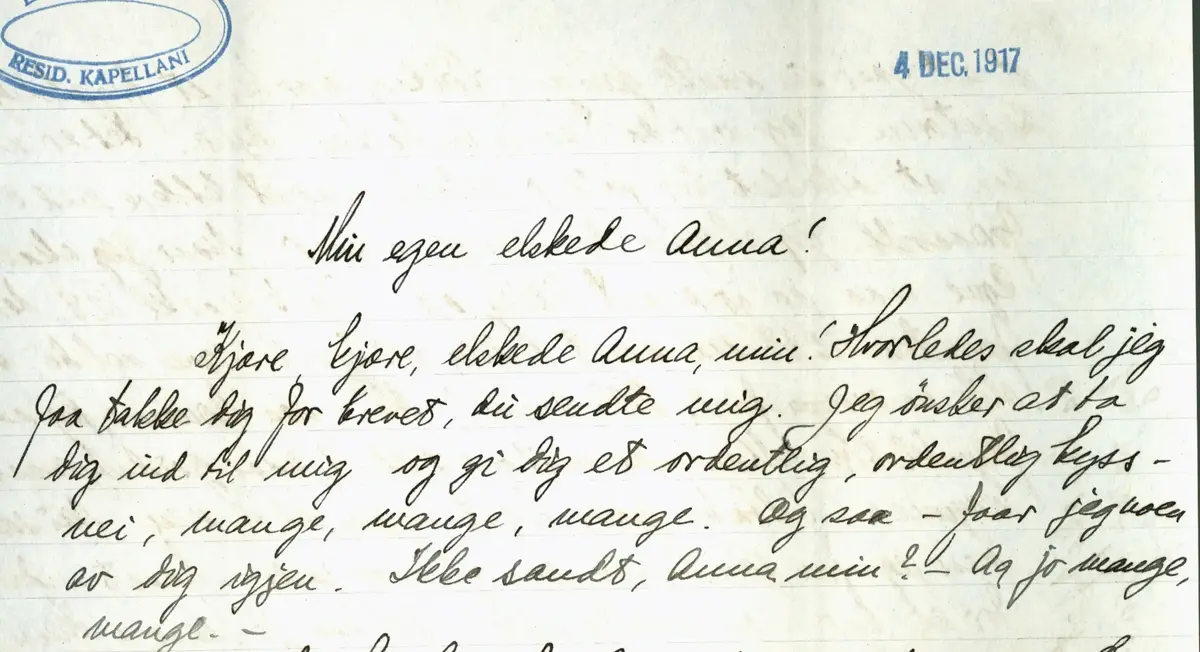 RESID. KAPELLANI
4 DEC. 1917
Min egen elskede Anna!
Kjære, kjære, elskede Anna, min! Hvorledes skal jeg
faa takke dig for brevet, du sendte mig. Jeg ønsker at ta
dig ind til mig og gi dig et ordentlig, ordentlig kyss –
nei, mange, mange, mange. Og saa – faar jeg noen
av dig igjen. Ikke sandt, Anna min? – Aa jo mange,
mange. –